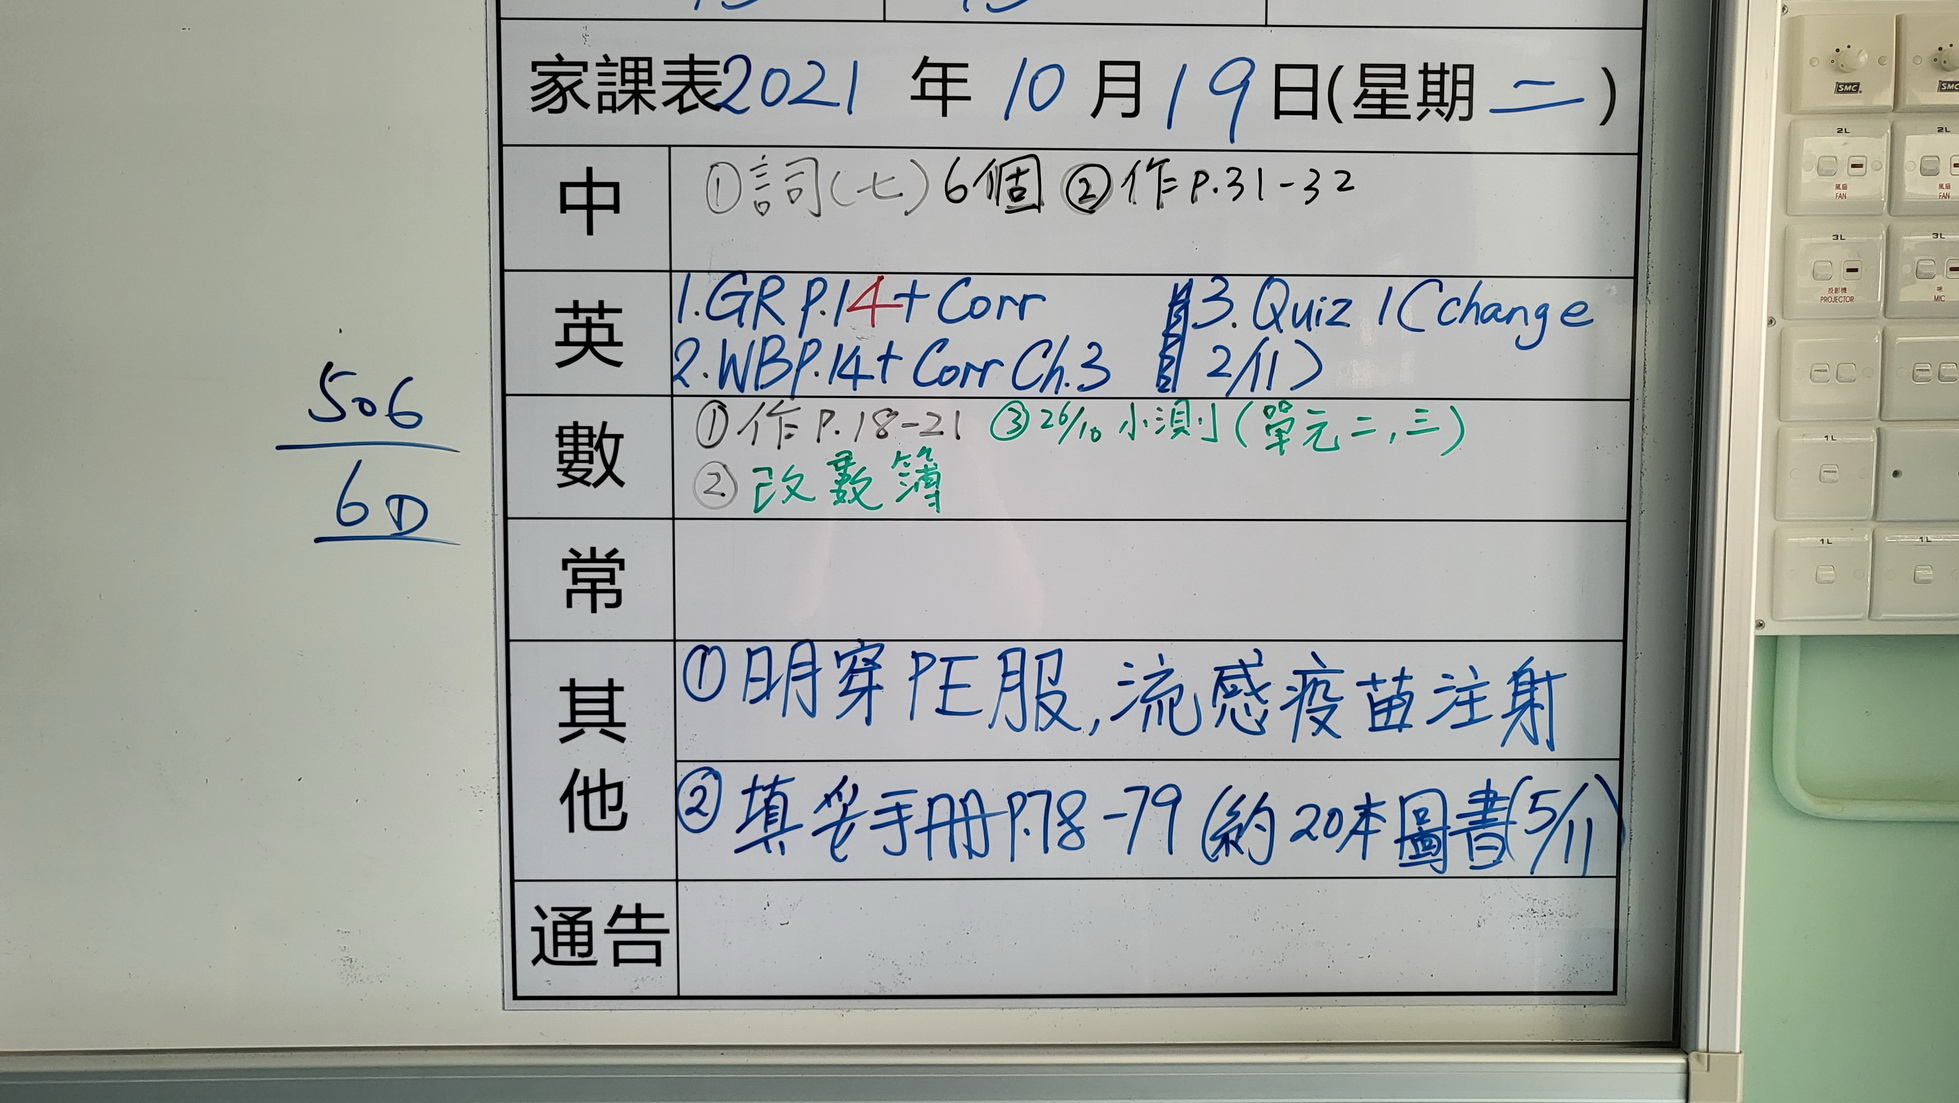 家課表2021 年 10 月 19 日(星期 二 )
中
①詞(七)6個 ②作P.31-32
英
1.GR P.14+Corr 3.Quiz 1(change
2.WBP.14+Corr Ch.3 2/11)
數
①作P.18-21 ③26/10 小測(單元二,三)
②改數簿
常
其他
①明穿PE服,流感疫苗注射
②填妥手冊P.78-79(約20本圖書(5/11)
通告
506
6D
SMC
SMC
2L
2L
風扇
FAN
風扇
FAN
3L
3L
投影機
PROJECTOR
咪
MIC
1L
1L
1L